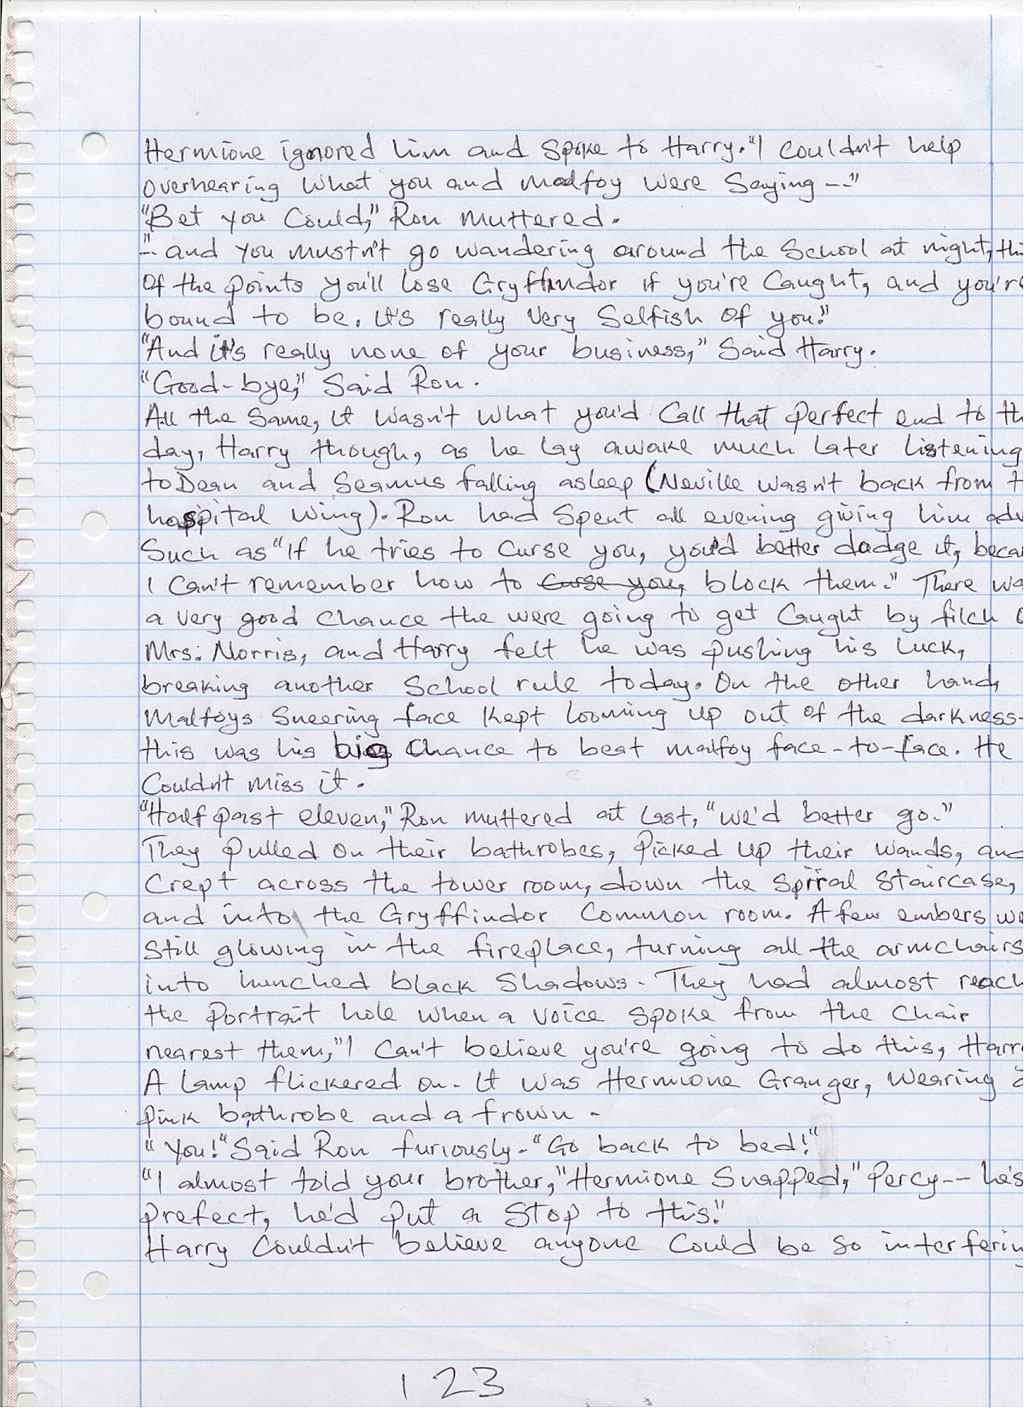 Hermione ignored him and spoke to Harry. "I couldn't help
overhearing what you and malfoy were saying --"
"Bet you could," Ron muttered.
"- and you mustn't go wandering around the school at night, thi
Of the points you'll lose Gryffindor if you're caught, and you're
bound to be. It's really very selfish of you."
"And it's really none of your business," Said Harry.
"Good-bye," Said Ron.
All the same, it wasn't what you'd call that perfect end to th
day, Harry though, as he lay awake much later listening
to Dean and Seamus falling asleep (Neville wasn't back from t
hospital wing). Ron had spent all evening giving him adv
Such as "If he tries to curse you, you'd better dodge it, becau
I can't remember how to curse you, block them." There wa
a very good chance the were going to get caught by filch o
Mrs. Norris, and Harry felt he was pushing his luck,
breaking another school rule today. On the other hand,
Malfoys sneering face kept looming up out of the darkness-
this was his big chance to beat malfoy face-to-face. He
Couldn't miss it.
"Half past eleven," Ron muttered at last, "we'd better go."
They pulled on their bathrobes, picked up their wands, and
crept across the tower room, down the spiral staircase,
and into the Gryffindor common room. A few embers we
still glowing in the fireplace, turning all the armchairs
into hunched black shadows. They had almost reach
the portrait hole when a voice spoke from the chair
nearest them, "I can't believe you're going to do this, Harr
A lamp flickered on. It was Hermione Granger, wearing a
pink bathrobe and a frown.
"You!" Said Ron furiously. "Go back to bed!"
"I almost told your brother," Hermione snapped, "Percy -- he's
prefect, he'd put a stop to this."
Harry couldn't believe anyone could be so interfering
123